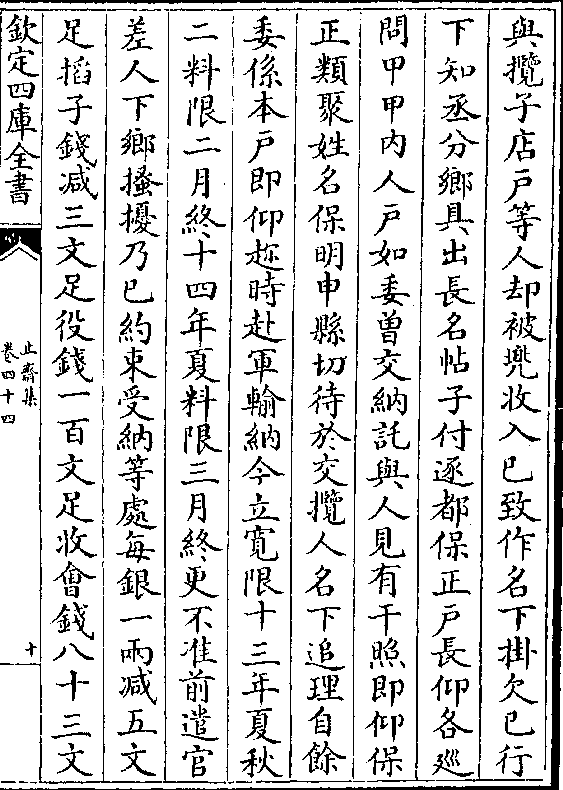 與攬子店戸等人却被兠收入已致作名下掛欠已行
下知丞分鄉具出長名帖子付逐都保正戸長仰各廵
問甲甲内人戸如委曽交納託與人見有干照即仰保
正類聚姓名保明申縣切待於交攬人名下追理自餘
委係本戸即仰趂時赴軍輸納今立寛限十三年夏秋
二料限二月終十四年夏料限三月終更不准前遣官
差人下鄉搔擾乃已約束受納等處每銀一兩减五文
足搯子錢减三文足役錢一百文足收㑹錢八十三文
欽定四庫全書
止齋集
卷四十四
十